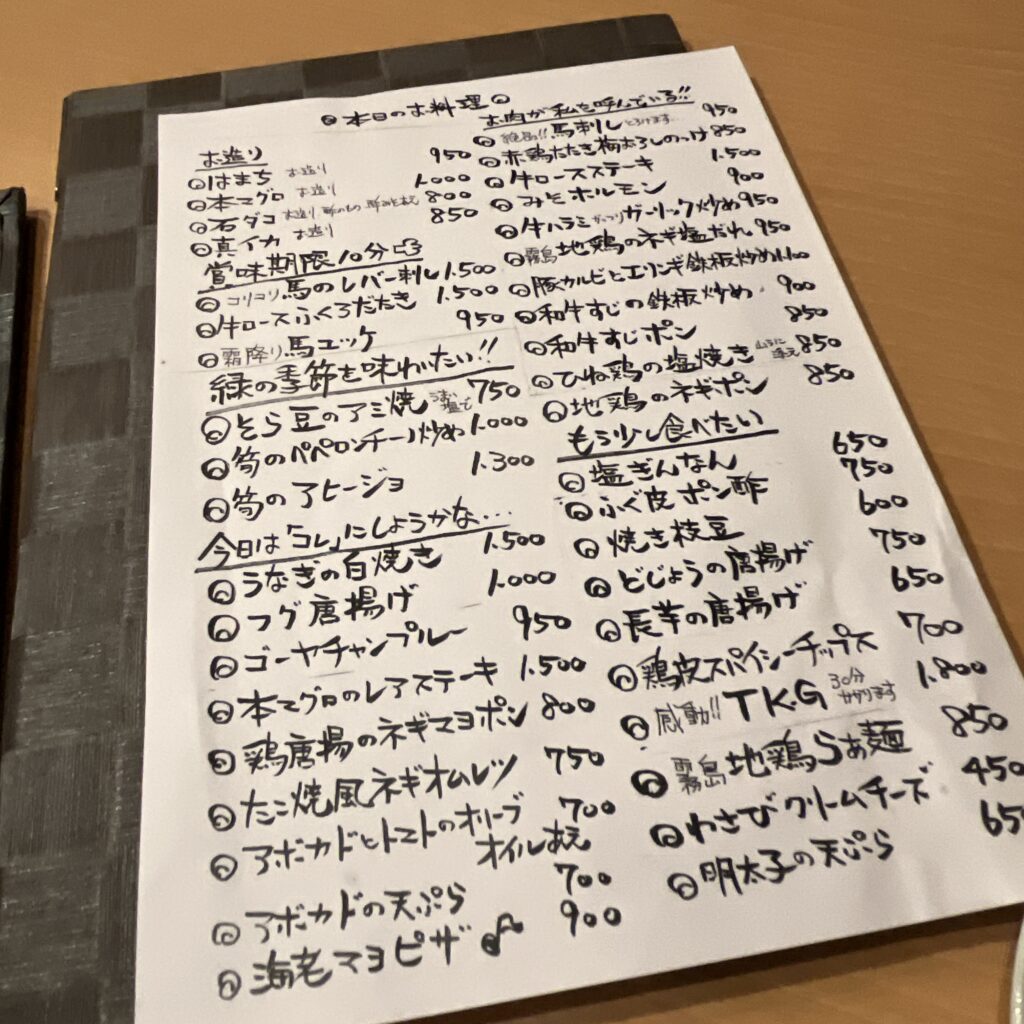 本日のお料理
お造り
はまち お造り 950
本マグロ お造り 1.000
石ダコ お造り 酢のもの 800
真イカ お造り 850
賞味期限10分
コリコリ馬のレバー刺し 1.500
牛ロースふくろだたき 1.500
霜降り馬ユッケ 950
緑の季節を味わいたい!!
そら豆のアミ焼 うまい塩で 750
筍のペペロンチーノ炒め 1.000
筍のアヒージョ 1.300
今日は「コレ」にしようかな...
うなぎの白焼き 1.500
フグ唐揚げ 1.000
ゴーヤチャンプルー 950
本マグロのレアステーキ 1.500
鶏唐揚のネギマヨポン 800
たこ焼風ネギオムレツ 750
アボカドとトマトのオリーブ 700
オイルあえ
アボカドの天ぷら 700
海老マヨピザ 900
お肉が私を呼んでいる!!
絶品!!馬刺し とろけます... 950
赤鶏たたき梅おろしのっけ 850
牛ロースステーキ 1.500
みそホルモン 900
牛ハラミガッツリガーリック炒め 950
霧島地鶏のネギ塩だれ 950
豚カルビとエリンギ鉄板炒め 1.100
和牛すじの鉄板炒め 900
和牛すじポン 850
ひね鶏の塩焼き 850
地鶏のネギポン 850
もう少し食べたい
塩ぎんなん 650
ふぐ皮ポン酢 750
焼き枝豆 600
どじょうの唐揚げ 750
長芋の唐揚げ 650
鶏皮スパイシーチップス 700
感動!!TKG 30分かかります 1.800
霧島地鶏らぁ麺 850
わさびクリームチーズ 450
明太子の天ぷら 650